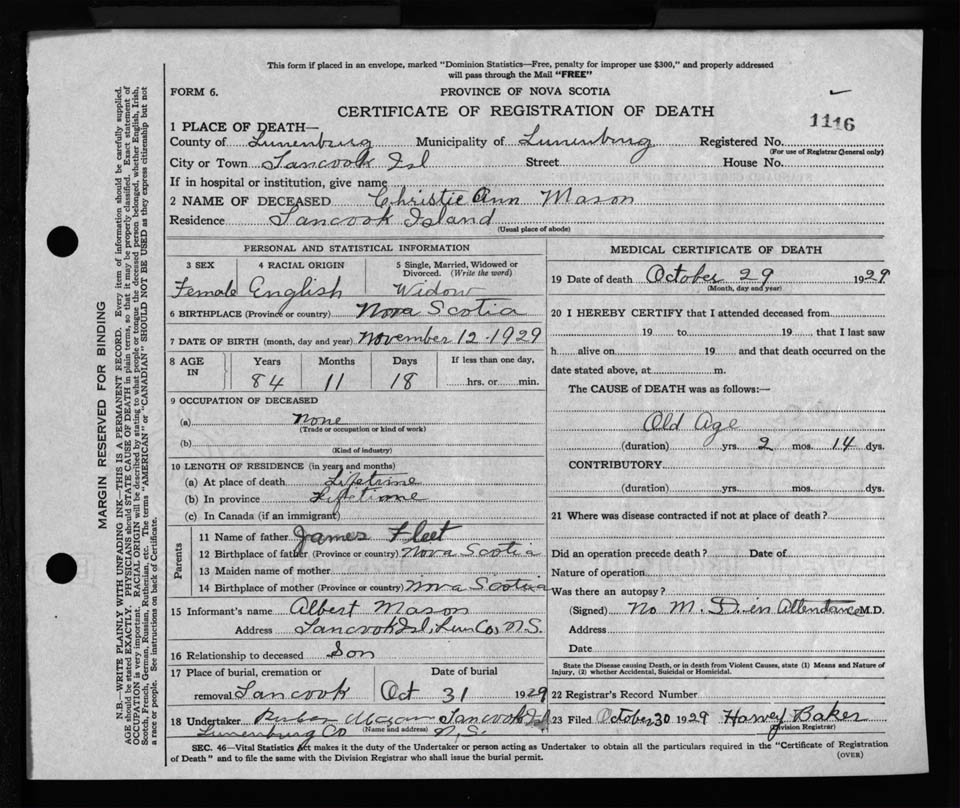 This form if placed in an envelope, marked "Dominion Statistics—Free, penalty for improper use $300," and properly addressed
will pass through the Mail "FREE"
FORM 6.
PROVINCE OF NOVA SCOTIA
CERTIFICATE OF REGISTRATION OF DEATH
1116
1 PLACE OF DEATH—
County of Lunenburg Municipality of Lunenburg Registered No.
(For use of Registrar General only)
City or Town Tancook Isl Street House No.
If in hospital or institution, give name
2 NAME OF DECEASED Christie Ann Mason
Residence Tancook Island
(Usual place of abode)
PERSONAL AND STATISTICAL INFORMATION
3 SEX 4 RACIAL ORIGIN 5 Single, Married, Widowed or
Divorced. (Write the word)
Female English Widow
6 BIRTHPLACE (Province or country) Nova Scotia
7 DATE OF BIRTH (month, day and year) November 12-1929
8 AGE IN Years Months Days If less than one day,
84 11 18 hrs. or min.
9 OCCUPATION OF DECEASED
(a) None
(Trade or occupation or kind of work)
(b)
(Kind of industry)
10 LENGTH OF RESIDENCE (in years and months)
(a) At place of death Lifetime
(b) In province Lifetime
(c) In Canada (if an immigrant)
Parents
11 Name of father James Fleet
12 Birthplace of father (Province or country) Nova Scotia
13 Maiden name of mother
14 Birthplace of mother (Province or country) Nova Scotia
15 Informant's name Albert Mason
Address Tancook Isl, Lun Co, N.S.
16 Relationship to deceased Son
17 Place of burial, cremation or Date of burial
removal Tancook Oct 31 1929
18 Undertaker Mason Tancook Isl
(Name and address)
Lunenburg Co N.S.
MEDICAL CERTIFICATE OF DEATH
19 Date of death October 29 1929
(Month, day and year)
20 I HEREBY CERTIFY that I attended deceased from
19 to 19 , that I last saw
h alive on 19 and that death occurred on the
date stated above, at m.
The CAUSE of DEATH was as follows:—
Old Age
(duration) yrs. 2 mos. 14 dys.
CONTRIBUTORY
(duration) yrs. mos. dys.
21 Where was disease contracted if not at place of death?
Did an operation precede death? Date of
Nature of operation
Was there an autopsy?
(Signed) No M.D. in Attendance M.D.
Address
Date
State the Disease causing Death, or in death from Violent Causes, state (1) Means and Nature of
Injury, (2) whether Accidental, Suicidal or Homicidal.
22 Registrar's Record Number
23 Filed October 30 1929 Harvey Baker
(Division Registrar)
SEC. 46—Vital Statistics Act makes it the duty of the Undertaker or person acting as Undertaker to obtain all the particulars required in the "Certificate of Registration
of Death" and to file the same with the Division Registrar who shall issue the burial permit.
(OVER)
MARGIN RESERVED FOR BINDING
N.B.—WRITE PLAINLY WITH UNFADING INK—THIS IS A PERMANENT RECORD. Every item of information should be carefully supplied.
AGE should be stated EXACTLY. PHYSICIANS should STATE CAUSE OF DEATH in plain terms, so that it may be properly classified. Exact statement of
OCCUPATION is very important. RACIAL ORIGIN will be described by stating to what people or tongue the deceased person belonged, whether English, Irish,
Scotch, French, German, Russian, Ruthenian, etc. The terms "AMERICAN" or "CANADIAN" SHOULD NOT BE USED as they express citizenship but not
a race or people. See instructions on back of Certificate.